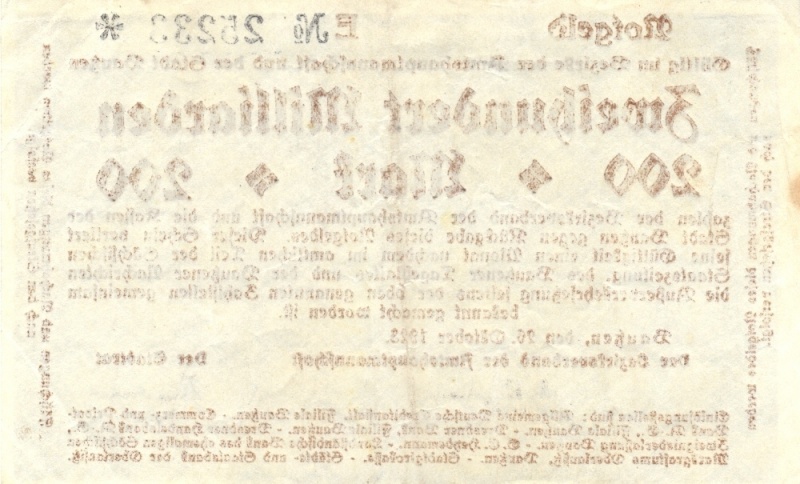 Notgeld E № 25233 *
Gültig im Bezirke der Amtshauptmannschaft und der Stadt Bautzen
Zweihundert Milliarden
200 ◆ Mark ◆ 200
zahlen der Bezirksverband der Amtshauptmannschaft und die Kassen der
Stadt Bautzen gegen Rückgabe dieses Notgeldes. Dieser Schein verliert
seine Gültigkeit einen Monat nachdem im amtlichen Teil der Sächsischen
Staatszeitung, des Bautzner Tageblattes und der Bautzner Nachrichten
die Außerkursetzung seitens der oben genannten Zahlstellen gemeinsam
bekannt gemacht worden ist.
Bautzen, den 26. Oktober 1923.
Der Bezirksverband der Amtshauptmannschaft Der Stadtrat
Einlösungsstellen sind: Allgemeine Deutsche Creditanstalt, Filiale Bautzen. - Commerz- und Privat-
Bank A. G., Filiale Bautzen. - Dresdner Bank, Filiale Bautzen. - Dresdner Handelsbank A. G.,
Zweigniederlassung Bautzen. - G. E. Heydemann. - Landständische Bank des ehemaligen Sächsischen
Markgraftums Oberlausitz, Bautzen. - Stadtgirokasse. - Städte- und Staatsbank der Oberlausitz.